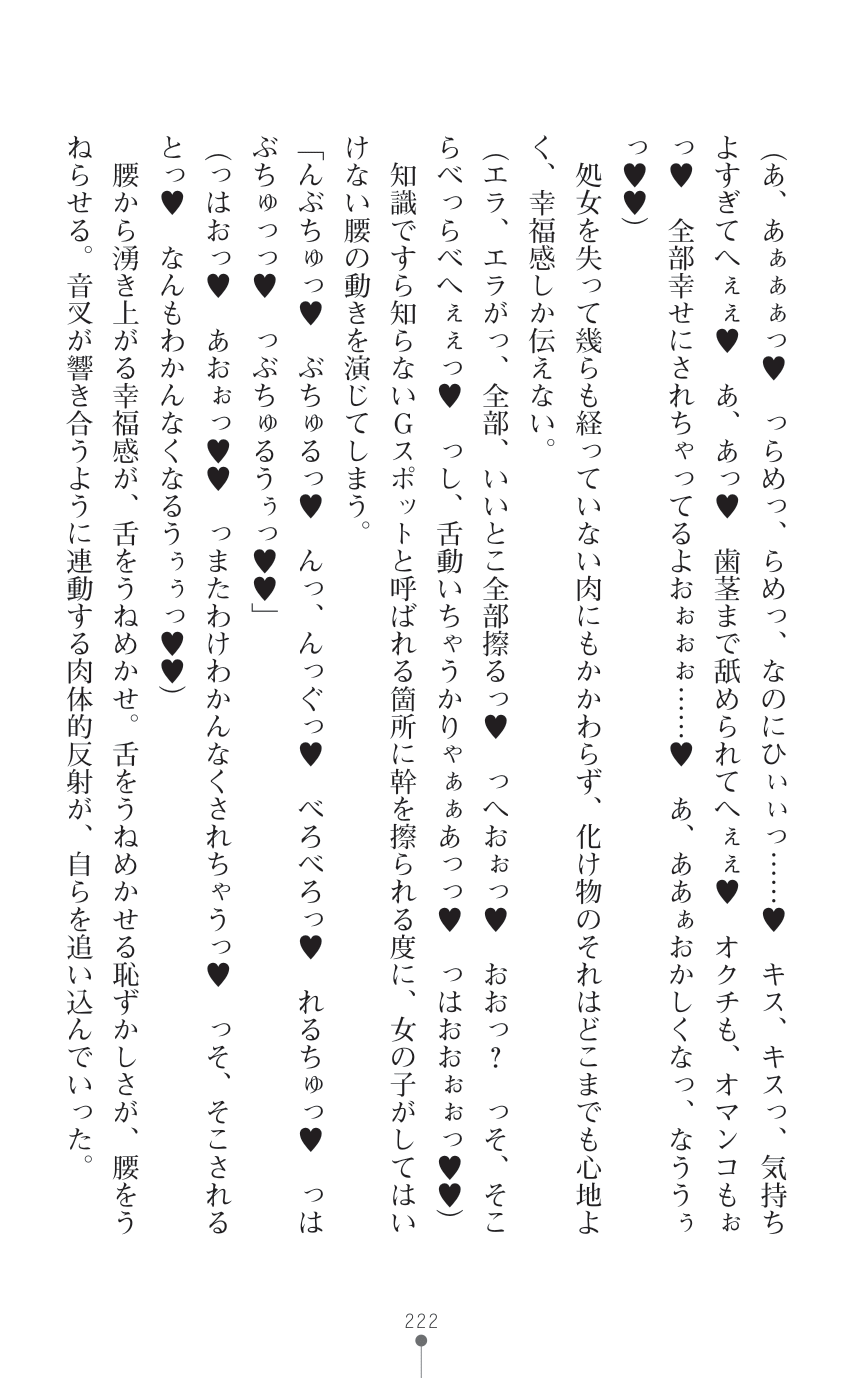 (あ、あぁぁぁっ♥　つらめっ、らめっ、なのにひぃぃっ……♥　キス、キスっ、気持ち
よすぎてへぇぇ♥　あ、あっ♥　歯茎まで舐められてへぇぇ♥　オクチも、オマンコもぉ
っ♥　全部幸せにされちゃってるよおぉぉぉ……♥　あ、ああぁおかしくなっ、なううぅ
っ♥♥)
　処女を失って幾らも経っていない肉にもかかわらず、化け物のそれはどこまでも心地よ
く、幸福感しか伝えない。
(エラ、エラがっ、全部、いいとこ全部擦るっ♥　っへおぉっ♥　おおっ？　っそ、そこ
らべっらべへぇぇっ♥　っし、舌動いちゃうかりゃぁぁあっっ♥　っはおおぉぉっ♥♥)
　知識ですら知らないＧスポットと呼ばれる箇所に幹を擦られる度に、女の子がしてはい
けない腰の動きを演じてしまう。
「んぶちゅっ♥　ぶちゅるっ♥　んっ、んっぐっ♥　べろべろっ♥　れるちゅっ♥　っは
ぶちゅっっ♥　っぶちゅるうぅっ♥♥」
(っはおっ♥　あおぉっ♥♥　っまたわけわかんなくされちゃうっ♥　っそ、そこされる
とっ♥　なんもわかんなくなるうぅぅっ♥♥)
　腰から湧き上がる幸福感が、舌をうねめかせ。舌をうねめかせる恥ずかしさが、腰をう
ねらせる。音叉が響き合うように連動する肉体的反射が、自らを追い込んでいった。
222